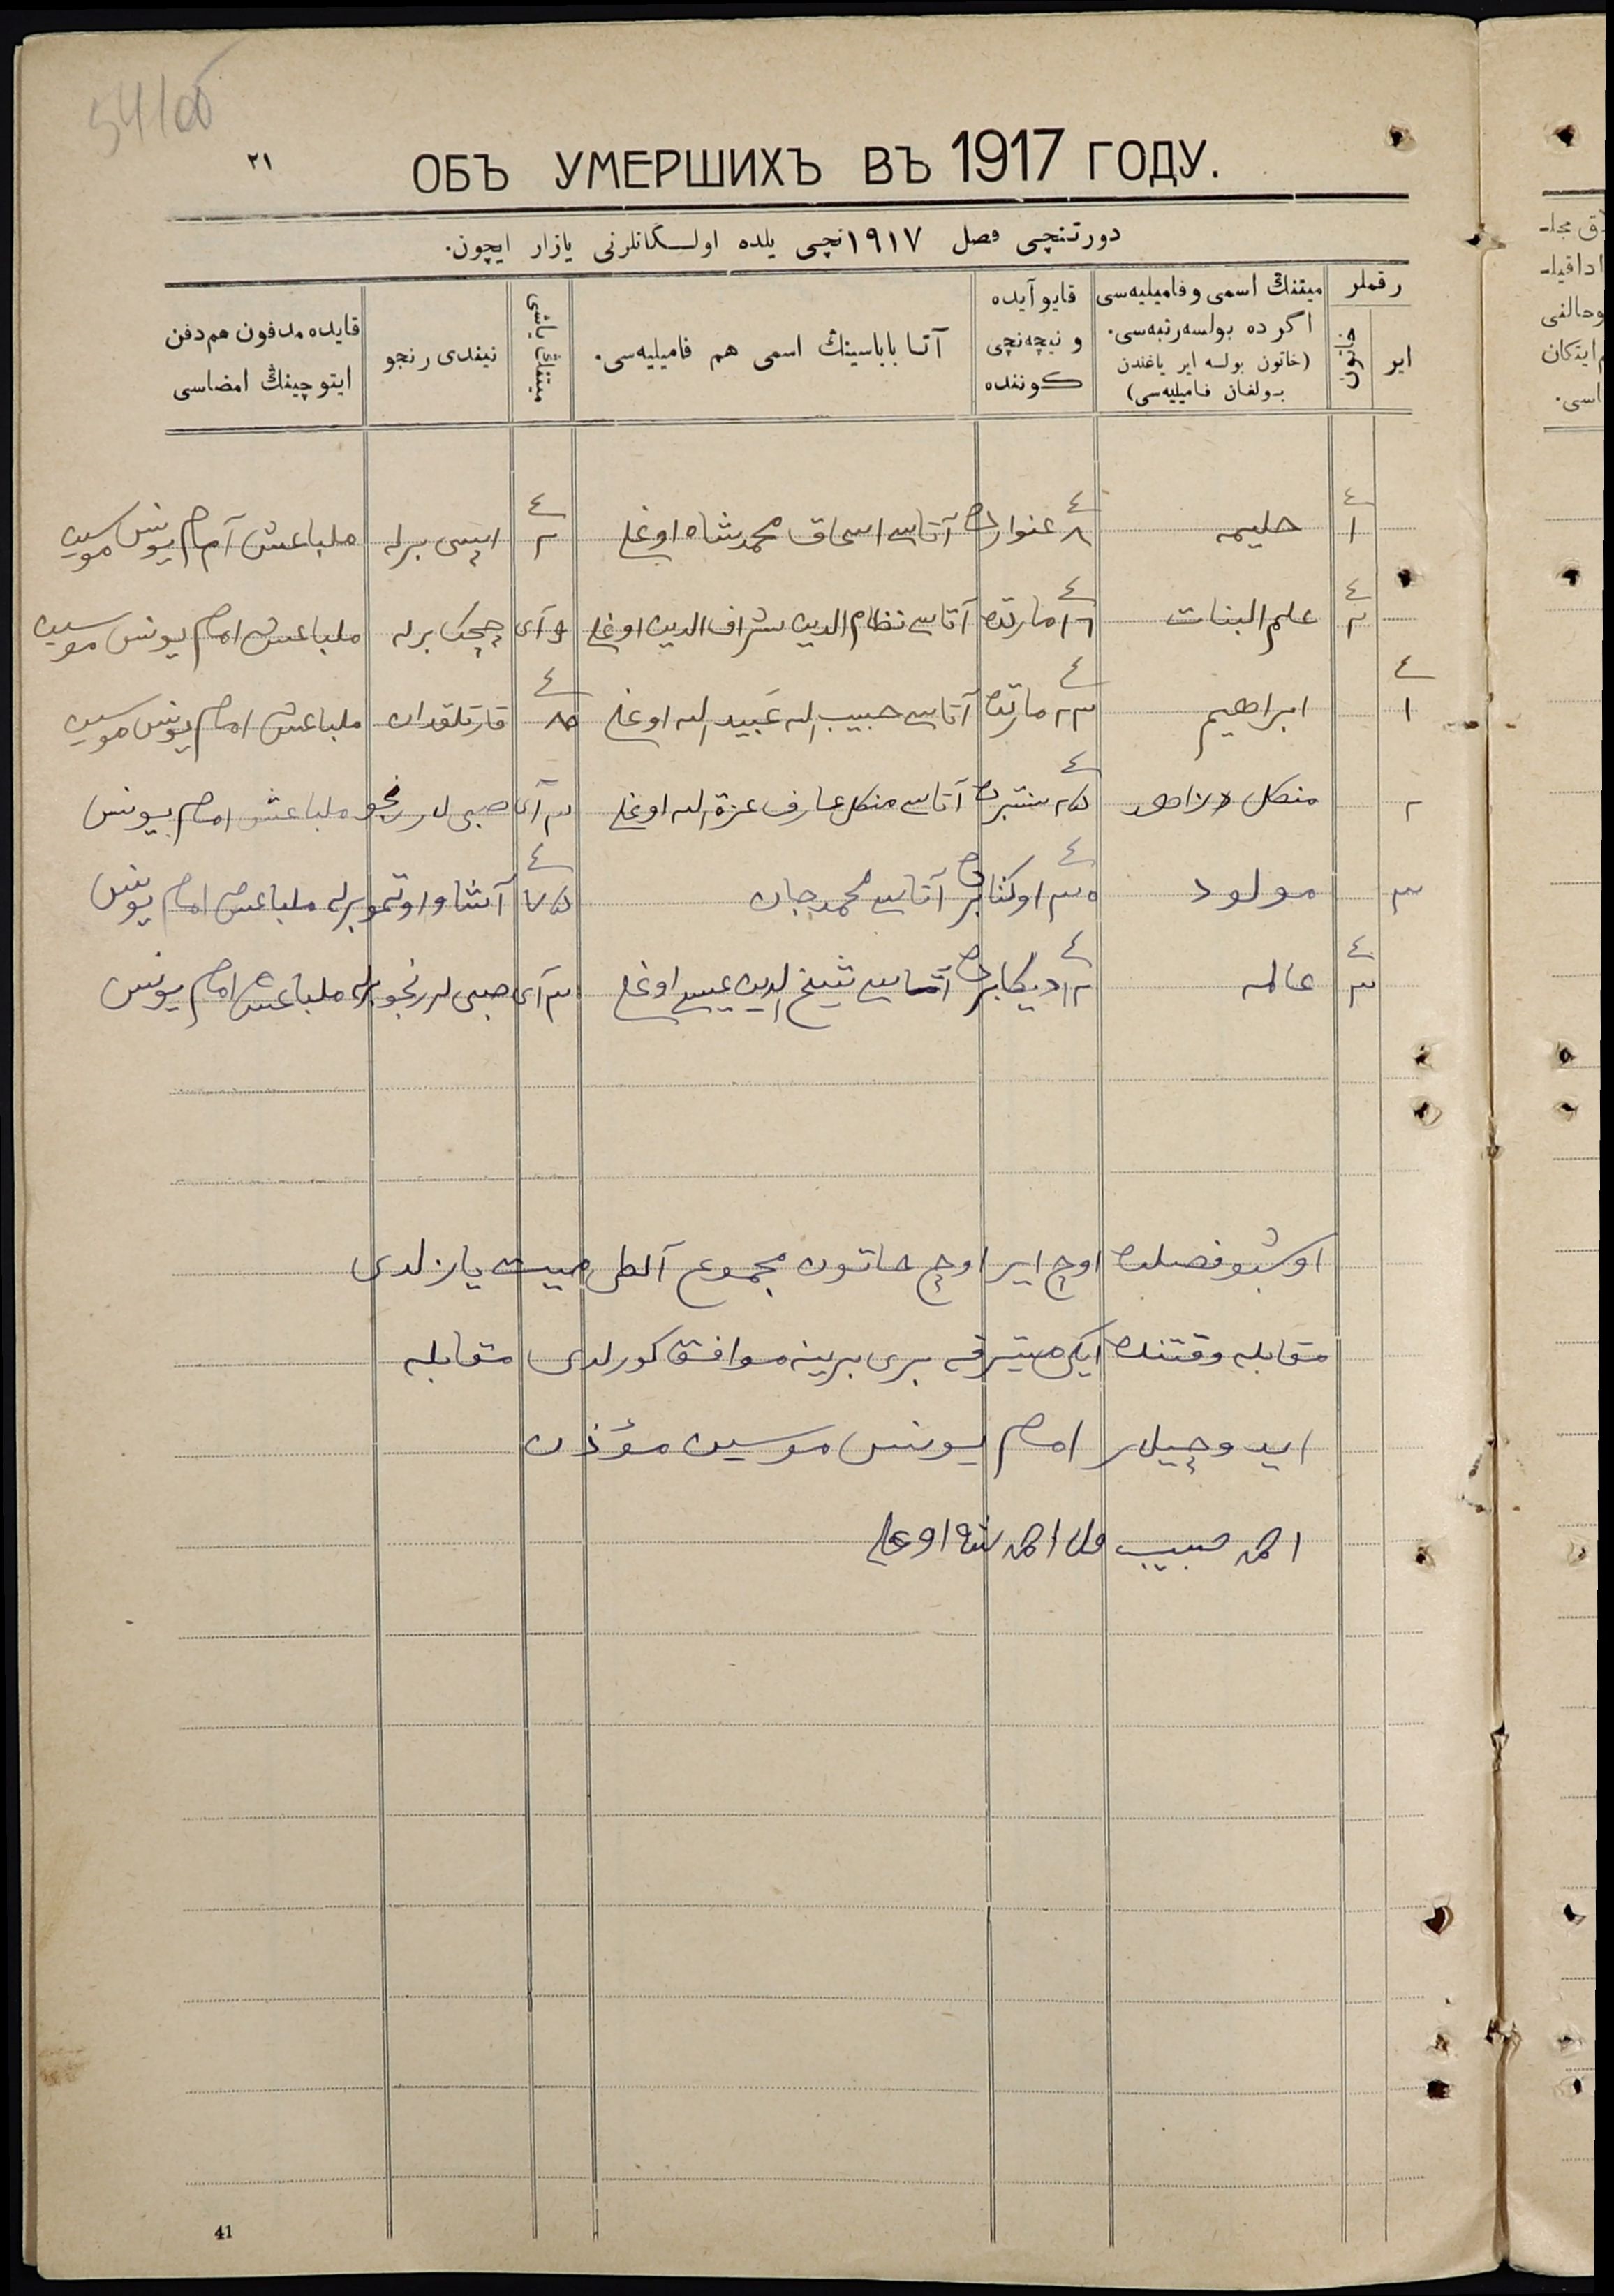 54100
٢١
ОБЪ УМЕРШИХЪ ВЪ 1917 ГОДУ.
دورتنچی فصل ١٩١٧نچی یلده اولـگانلرنی یازار ایچون.
رقملر
ایر
خاتون
میتنڭ اسمی وفامیلیه‌سی
اگر ده بولسه رتبه‌سی.
(خاتون بولسه ایر یاغندن
بولغان فامیلیه‌سی)
قایو آیده
و نیچه‌نچی
كوننده
آتا باباسینڭ اسمی هم فامیلییه‌سی.
میتنڭ یاشی
نیندی رنجو
قایده مدفون هم دفن
ایتوچینڭ امضاسی
١ حلیمه ٨ غنوارده آتاسی اسحاق محمدشاه اوغلی ٢ ایسی برله ملباعش امام یونس موسین
٢ علم البنات ١٦ مارتده آتاسی نظام الدین شراف الدین اوغلی ٩ آی چچك برله ملباعش امام یونس موسین
١ ابراهیم ٢٣ مارتده آتاسی حبیب الله عبید الله اوغلی ٨٥ قارتلقدان ملباعش امام یونس موسین
٢ ٢٥ سنتبرده آتاسی منكل عارف عزة الله اوغلی ٣ آی صبی لر رنجو ملباعش امام یونس
٣ مولود ٣٠ اوكتابرده آتاسی محمدجان ٧٥ آشاو اوتمو برله ملباعش امام یونس
٣ عالمه ١٢ دیكابرده آتاسی شیخ الدین عیسی اوغلی ٣ آی صبی لر رنجو برله ملباعش امام یونس
اوشبو فصلده اوچ ایر اوچ خاتون مجموع آلطی میت یازلدی
مقابله وقتنده ایكی میتریقه بری برینه موافق كورلدی مقابله
ایدوچیلر امام یونس موسین مؤذن
احمد حبیب احمد اوغلی
41